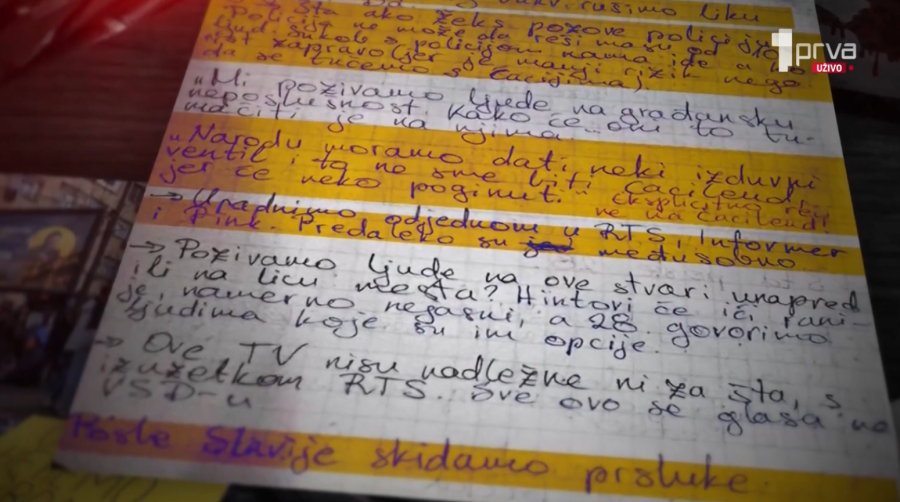 rušimo liku
→ Šta ako žeks pozove policiju
policija ne može da reši masu od
sukobe s policijom nama ide a no
zapravo (jer je manji rizik nego
da se tučemo s ćacijima).
„Mi pozivamo ljude na građansku
neposlušnost. Kako će oni to tu-
mačiti je na njima...
„Narodu moramo dati neki izduvni
ventil i to ne sme biti Ćacilend
jer će neko poginuti." Eksplicitno reći
ne na Ćacilend!
→ Upadnimo odjednom u RTS, Informer
i Pink. Predaleko su međusobno.
→ Pozivamo ljude na ove stvari unapred
ili na licu mesta? Hintovi će ići rani-
je, namerno nejasni, a 28. govorimo
ljudima koje su im opcije.
→ Ove TV nisu nadležne ni za šta, s
izuzetkom RTS. Sve ovo se glasa na
VSD-u
Posle Slavije skidamo prsluke.
1prva
UŽIVO